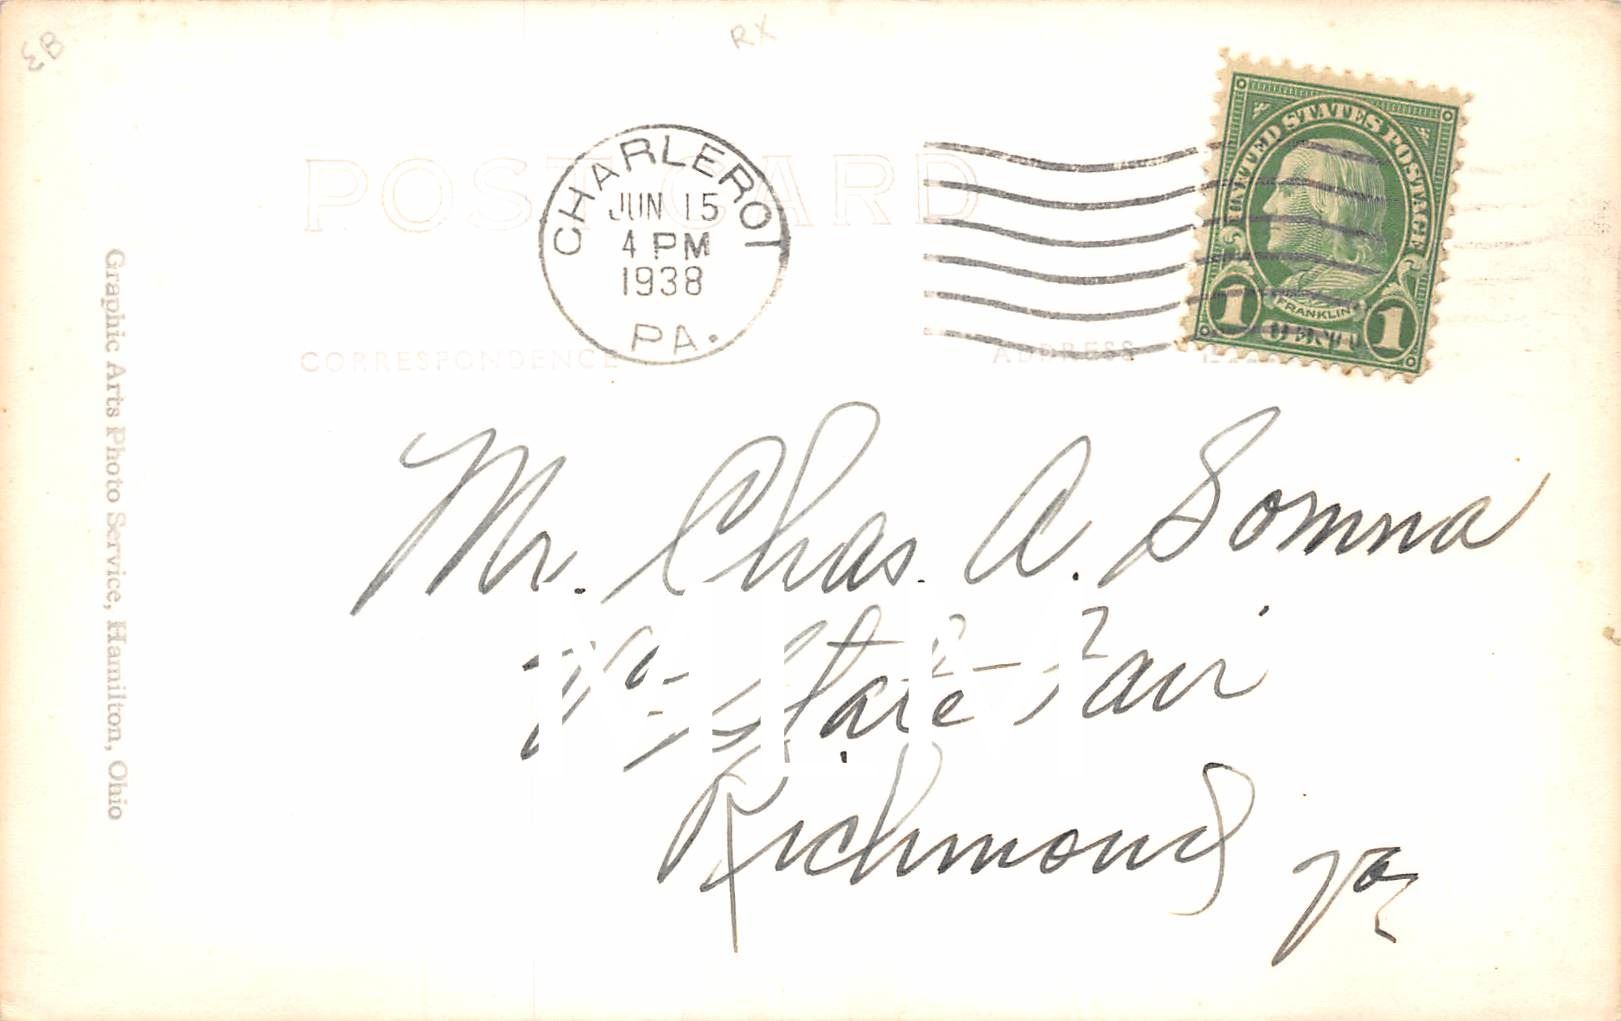 EB
RX
POST CARD
CHARLEROI
JUN 15
4 PM
1938
PA.
UNITED STATES POSTAGE
FRANKLIN
1 CENT 1
CORRESPONDENCE
ADDRESS
Mr. Chas. A. Somma
Va. State Fair
Richmond
Va
Graphic Arts Photo Service, Hamilton, Ohio